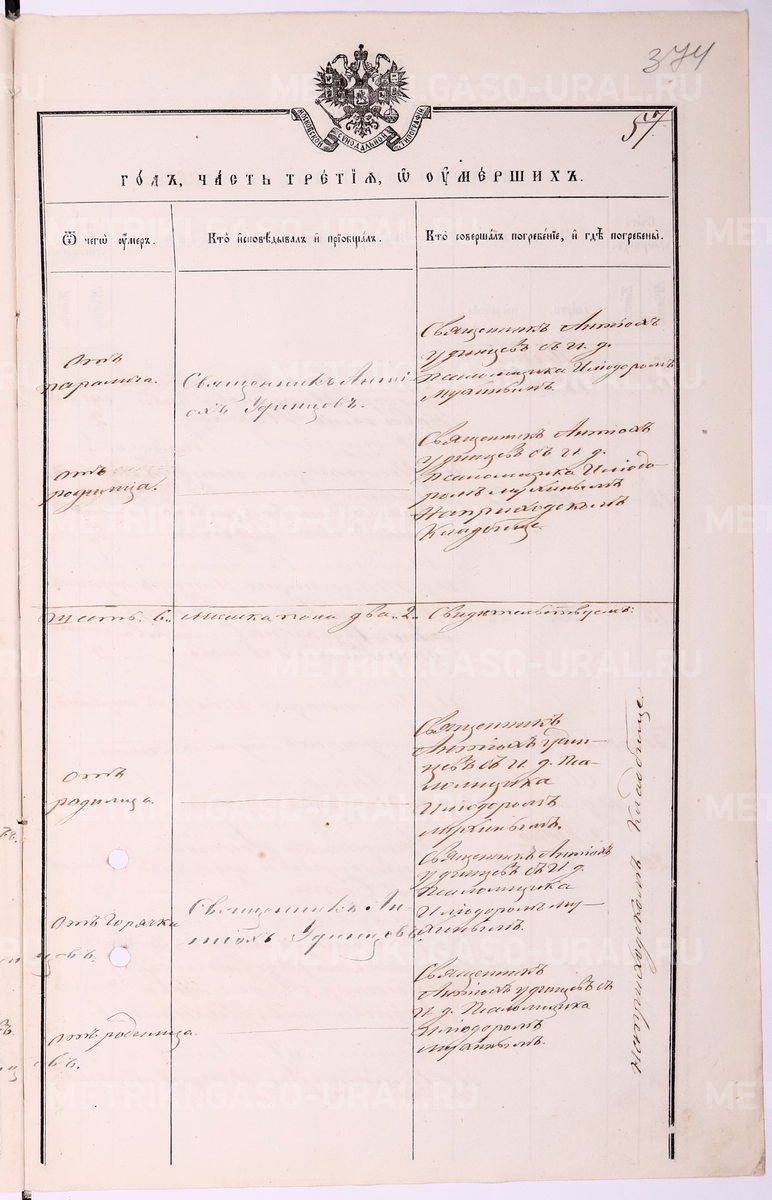 374
57
МОСКОВСКОЙ СУНОДАЛЬНОЙ ТИПОГРАФІИ
ГОДЪ, ЧАСТЬ ТРЕТІЯ, Ѿ ОУМЕРШИХЪ.
Ѿ чегѡ оумеръ.
Кто исповѣдывалъ и пріобщалъ.
Кто совершалъ погребеніе, и гдѣ погребены.
отъ
паралича.
Священникъ Анті-
охъ Удинцовъ.
Священникъ Антіохъ
Удинцевъ съ И. д.
Псаломщика Иліодоромъ
Мухинымъ.
отъ
родимца.
Священникъ Антіохъ
Удинцевъ съ И. д.
Псаломщика Иліодо-
ромъ Мухинымъ
На приходскомъ
Кладбище
шесть. 6.
женска пола два. 2.
Свидѣтельствуемъ:
отъ
родимца.
Священникъ
Антіохъ Удин-
цевъ съ И. д. Пса-
ломщика
Иліодоромъ
Мухинымъ.
отъ горячки
Священникъ Ан-
тіохъ Удинцовъ.
Священникъ Антіохъ
Удинцевъ съ И. д.
Псаломщика
Иліодоромъ Му-
хинымъ.
отъ родимца.
Священникъ
Антіохъ Удинцевъ съ
И. д. Псаломщика
Иліодоромъ
Мухинымъ.
На приходскомъ Кладбище.
METRIKI.GASO-URAL.RU